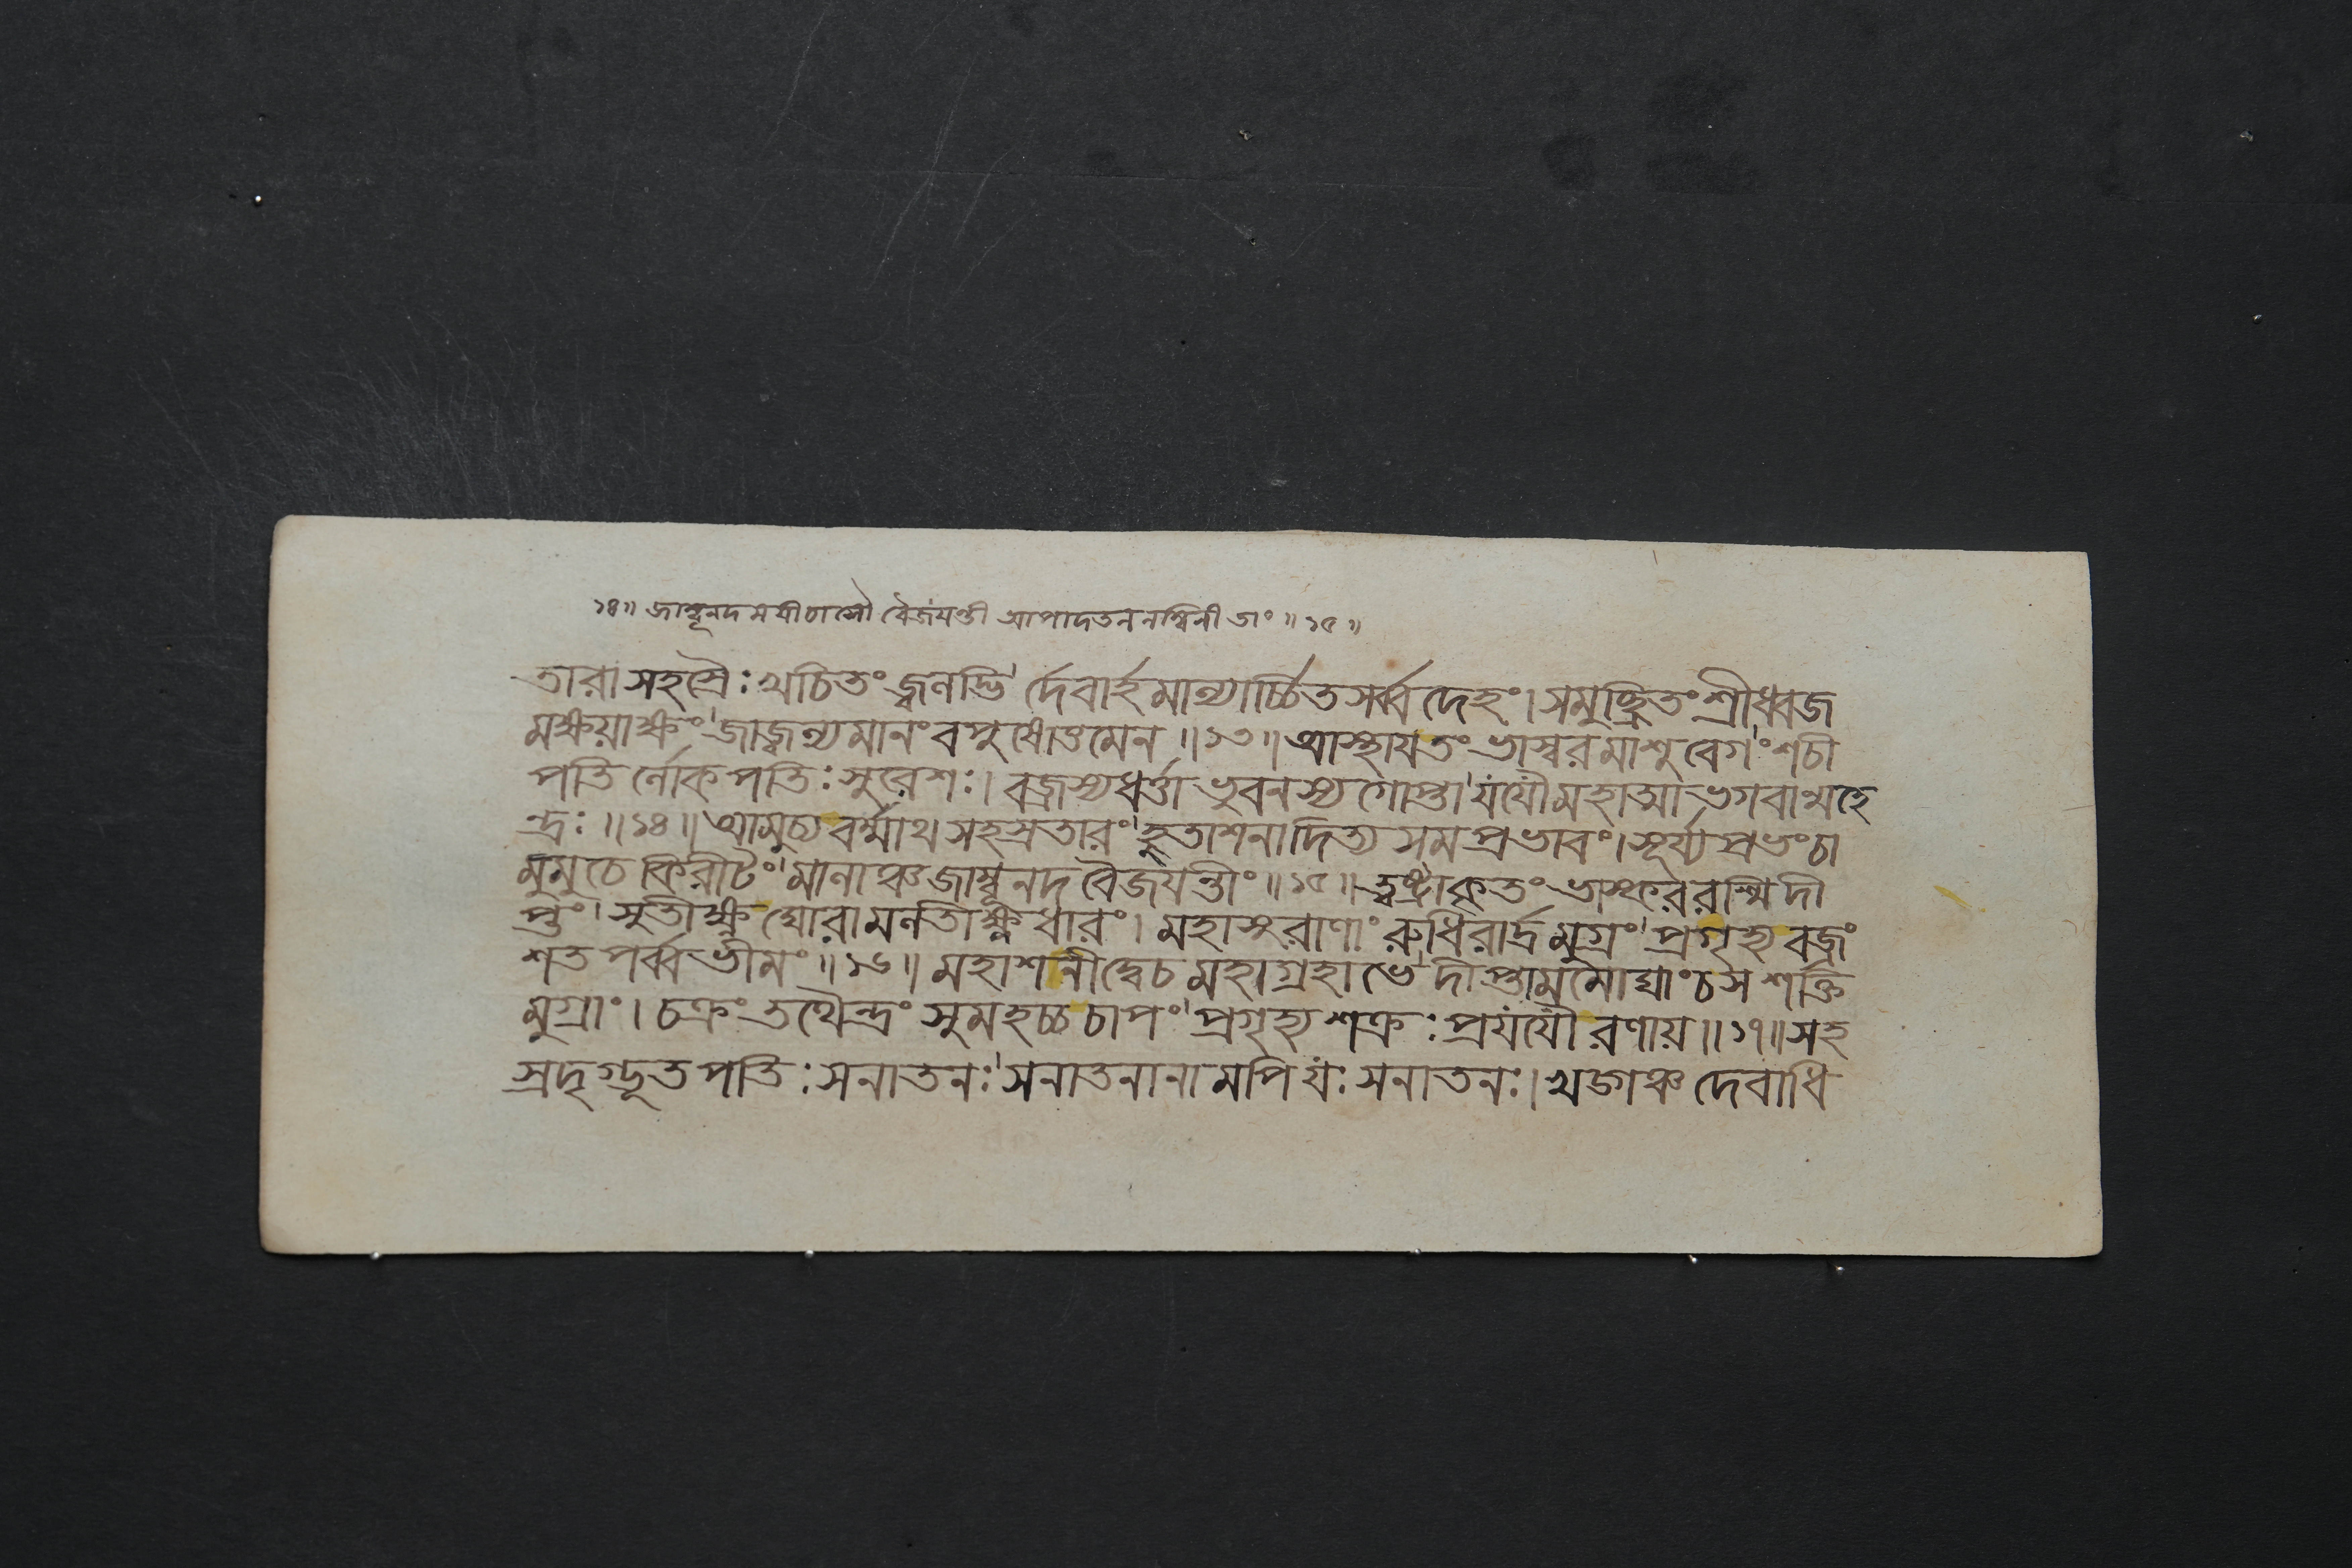 ১৪॥ জাম্বূনদময়ী চাসৌ বৈজয়ন্তী আপাদতললম্বিনী তাং॥ ১৫॥
তারাসহস্রৈঃ খচিতং জ্বলদ্ভি র্দেবার্হমাল্যার্চ্চিতসর্ব্বদেহং। সমুচ্ছ্রিতং শ্রীধ্বজ
মক্ষয়াক্ষং জাজ্বল্যমানং বপুষোত্তমেন॥ ১৩॥ আস্থায় তং ভাস্বরমাশুবেগং শচী
পতি র্লোকপতিঃ সুরেশঃ। বজ্রস্য ধর্ত্তা ভুবনস্য গোপ্তা যযৌ মহাত্মা ভগবান্মহে
ন্দ্রঃ॥ ১৪॥ আমুচ্য বর্ম্মাথ সহস্রতারং হুতাশনাদিত্যসমপ্রভাবং। সূর্য্যপ্রভং চা
মুমুচে কিরীটং মালাঞ্চ জাম্বূনদবৈজয়ন্তীং॥ ১৫॥ ত্বষ্ট্রাকৃতং ভাস্কররশ্মিদী
প্তং সুতীক্ষ্ণঘোরামলতীক্ষ্ণধারং। মহাসুরাণাং রুধিরার্দ্রমুগ্রং প্রগৃহ্য বজ্রং
শতপর্ব্বভীমং॥ ১৬॥ মহাশনীদ্বেচ মহাগ্রহাভে দীপ্তামমোঘাং চ স শক্তি
মুগ্রাং। চক্রং তথৈন্দ্রং সুমহচ্চ চাপং প্রগৃহ্য শক্রঃ প্রযযৌ রণায়॥ ১৭॥ সহ
স্রদৃগ্ভূতপতিঃ সনাতনঃ সনাতনানামপি যঃ সনাতনঃ। খড্গঞ্চ দেবাধি